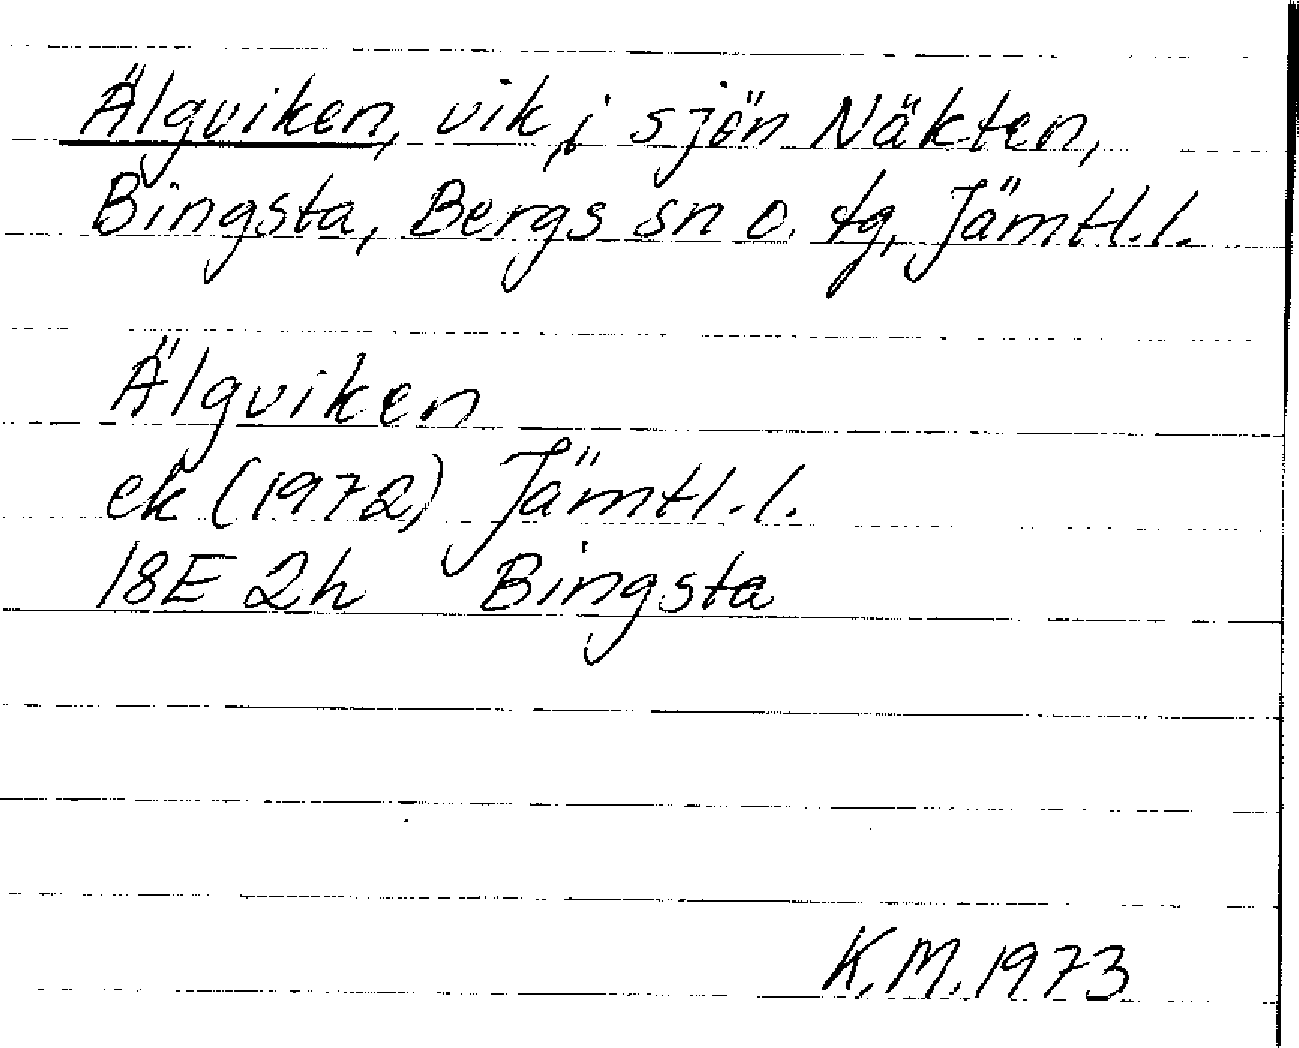 Älgviken, vik, i sjön Näkten,
Bingsta, Bergs sn o. tg, Jämtl.l.
Älgviken
ek (1972) Jämtl.l.
18E 2h Bingsta
K.M. 1973